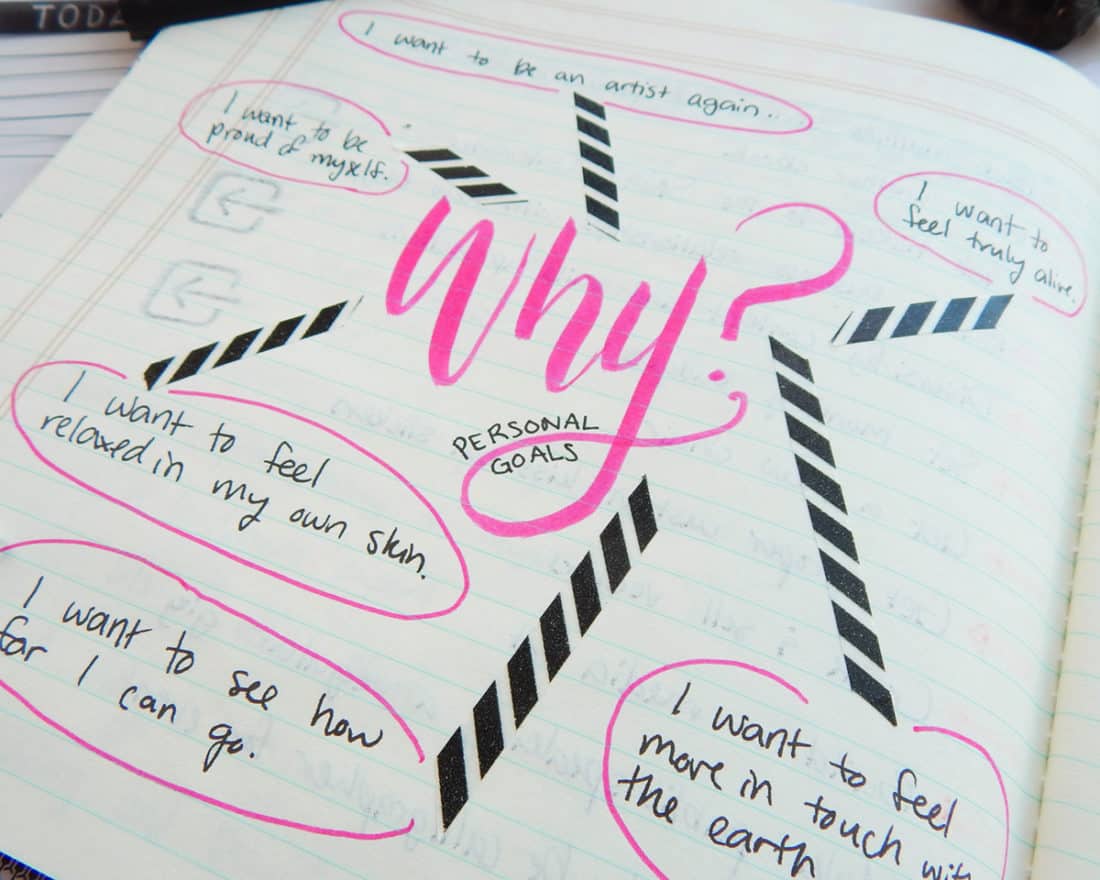 I want to be an artist again..
I want to be
proud of myself.
I want to
feel truly alive.
Why?
PERSONAL
GOALS
I want to feel
relaxed in my own skin.
I want to see how
far I can
go.
I want to feel
more in touch with
the earth